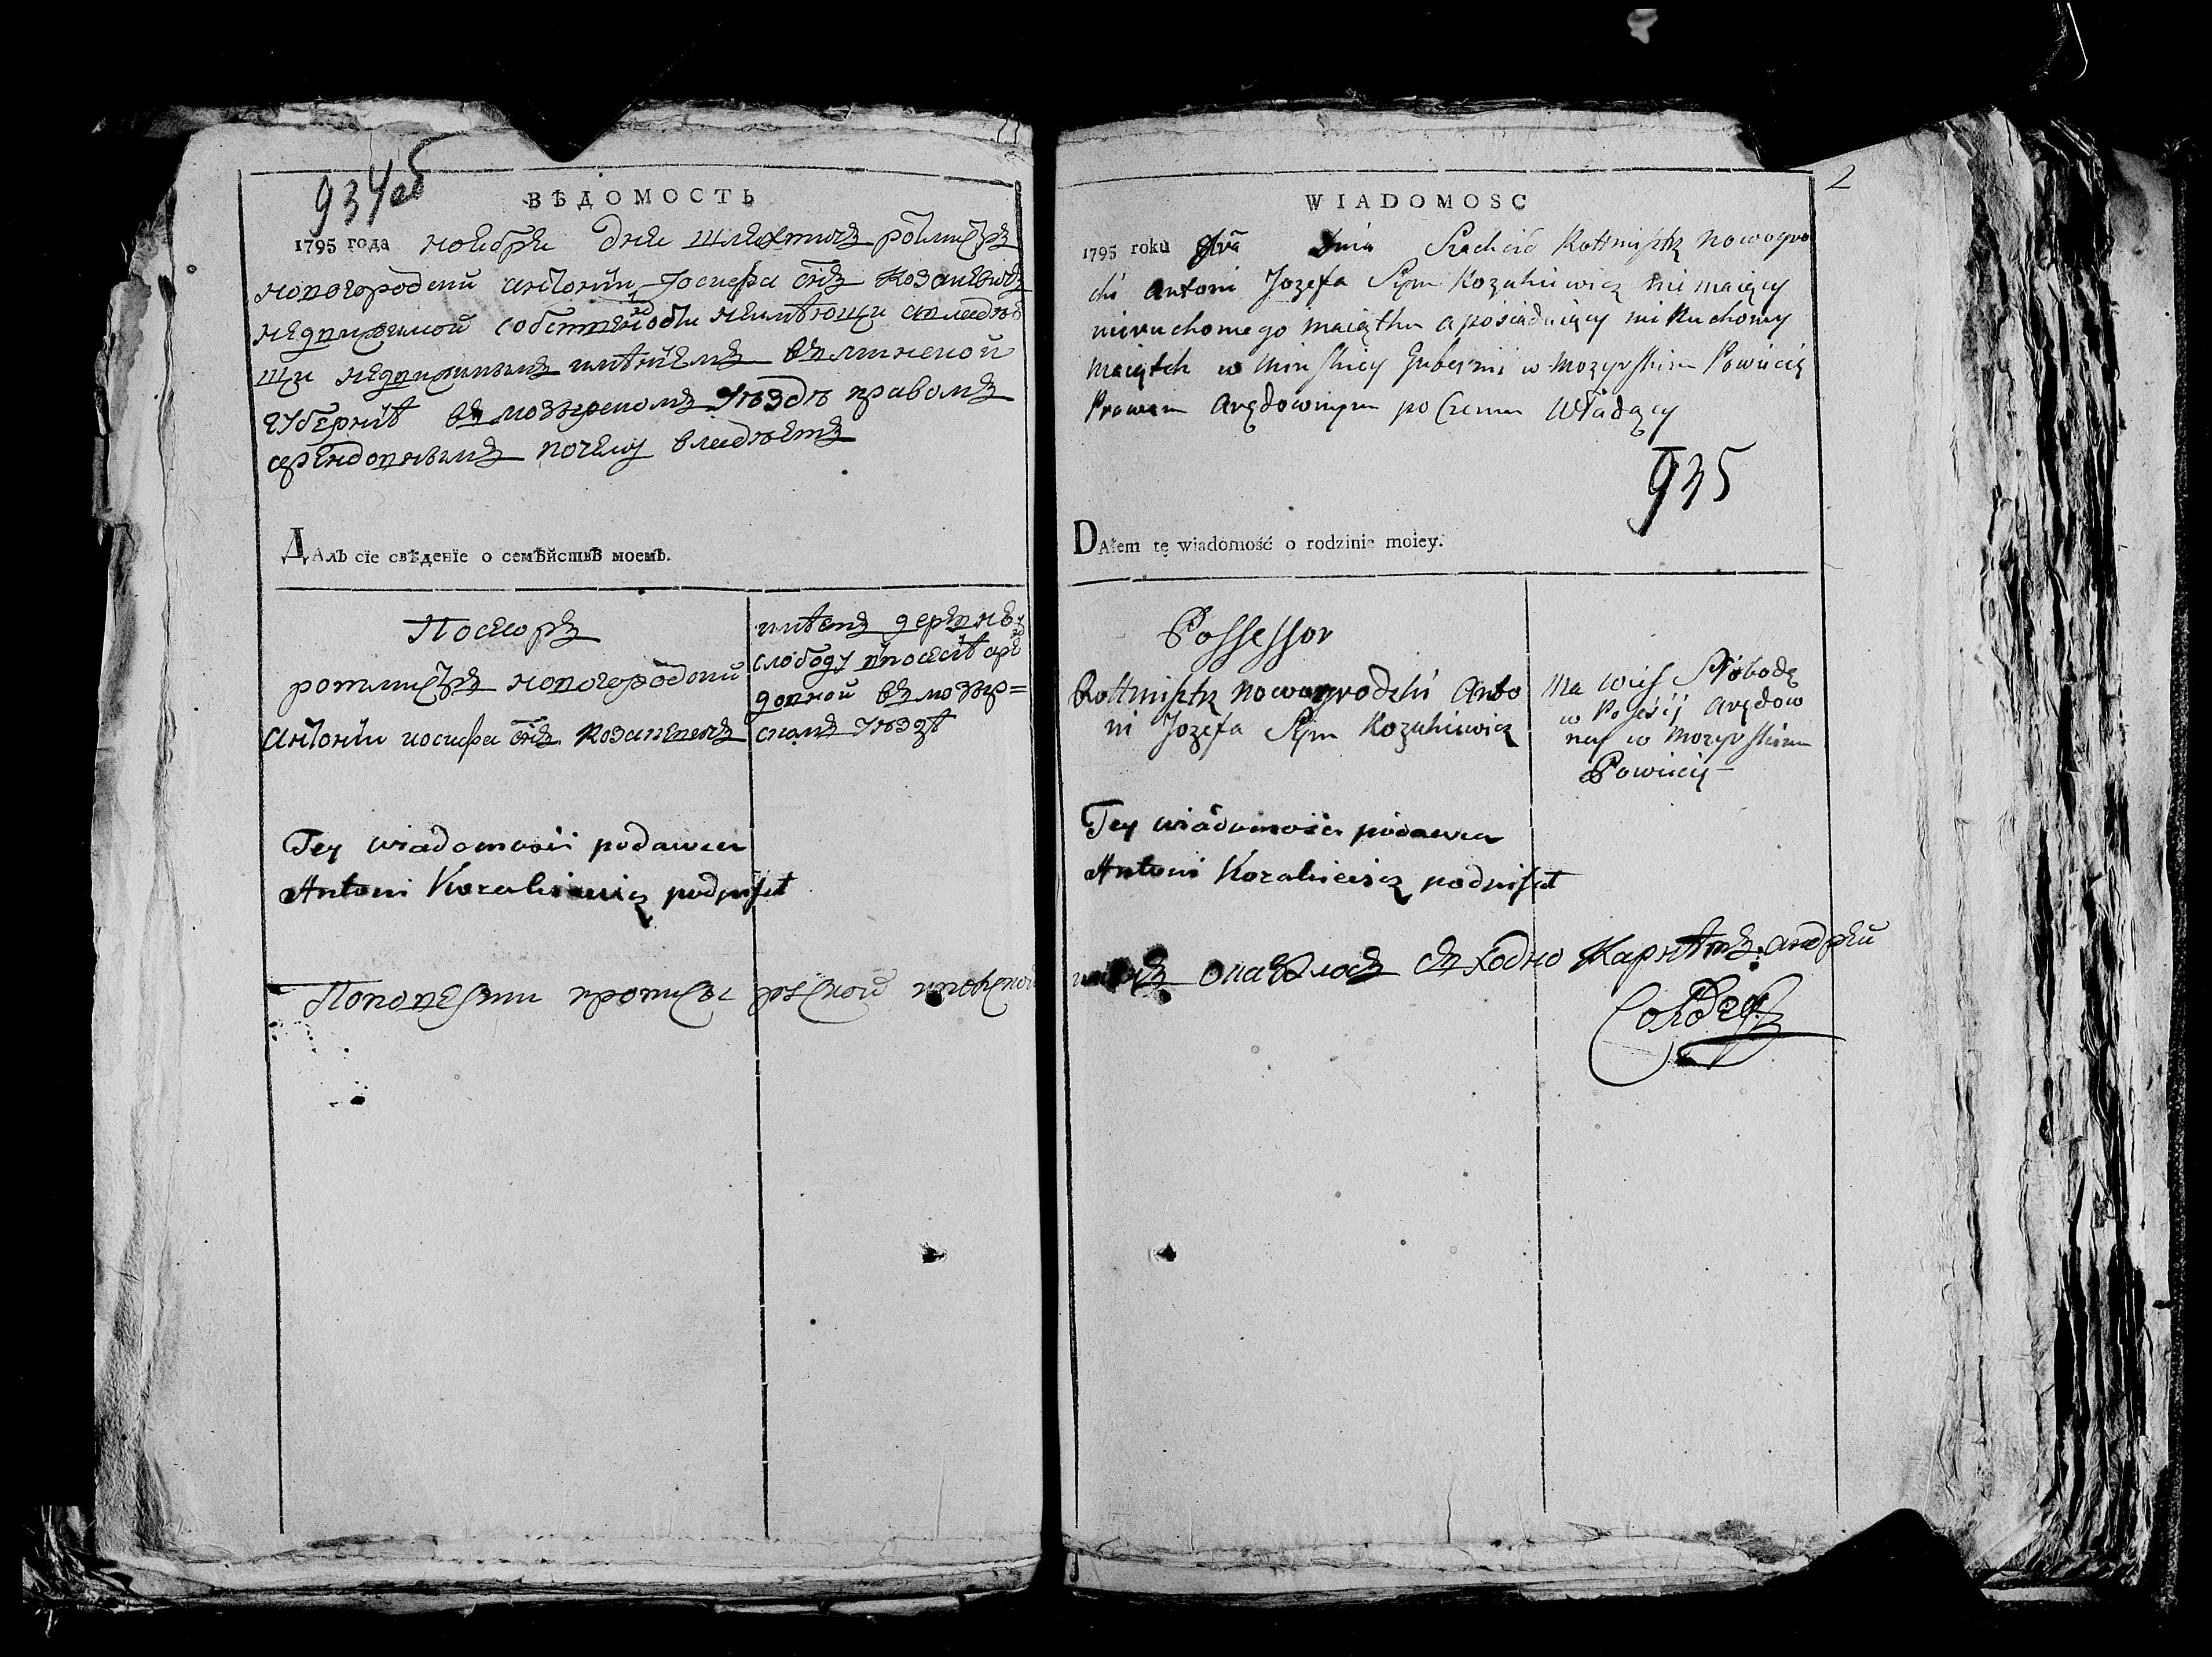 934об
ВѢДОМОСТЬ
1795 года ноября дня шляхтичъ ротмистръ
новогородский антоний иосифа снъ козакевичъ
недвижимой собственности неимѣющи авладѣю
щи недвижимымъ имѣнiемъ въ минской
губернiѣ въ мозырскомъ уѣздѣ правомъ
арендовнымъ почему владѣетъ
ДАлъ сїе свѣденїе о семѣйствѣ моемъ.
Посесоръ
ротмистръ новогородский
антонiй иосифа снъ козакевичъ
имѣетъ деревню
слободу впосесiѣ арен
довной въ мозыр=
скомъ уѣздѣ
Tey wiadomosci podawca
Antoni Kozakiewicz podpisał
2
WIADOMOSC
1795 roku 9bra Dnia Szlachcic Rottmistrz Nowogro
dzki Antoni Jozefa Syn Kozakiewicz nie maiący
nieruchomego maiątku a posiadaiący nieruchomy
maiątek w Minskiey Gubernii w Mozyrskim Powiecie
Prawem Arędownym po czemu Władający
935
DAłem tę wiadomość o rodzinie moiey.
Possessor
Rottmistrz Nowogrodzki Anto
ni Jozefa Syn Kozakiewicz
Ma wieś Słobodę
w Posesij Arędow
ney w Mozyrskim
Powiecie
Tey wiadomości podawca
Antoni Kozakiewicz podpisał
оказалось сходно Карнетъ андрей